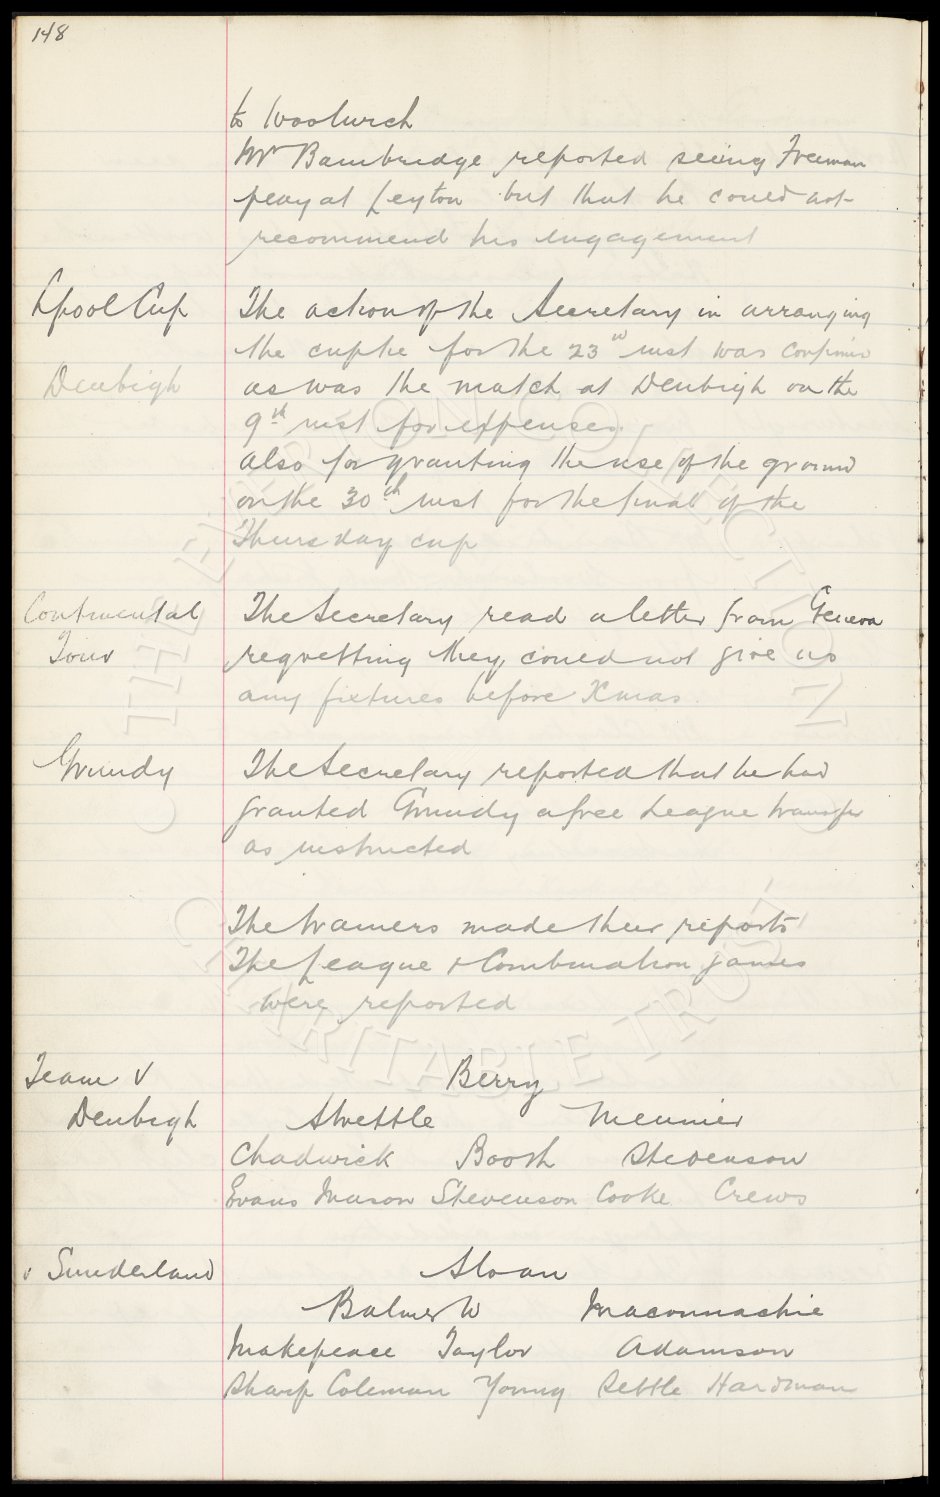 148
to Woolwich
Mr Bainbridge reported seeing Freeman
play at Leyton but that he could not
recommend his engagement
Lpool Cup The action of the Secretary in arranging
the cuptie for the 23rd inst was confirmed
Denbigh as was the match at Denbigh on the
9th inst for expenses.
also for granting the use of the ground
on the 30th inst for the final of the
Thursday cup
Continental The Secretary read a letter from Geneva
Tour regretting they could not give us
any fixtures before Xmas
Grundy The Secretary reported that he had
granted Grundy a free League transfer
as instructed
The trainers made their reports
The League & Combination games
were reported
Team v Berry
Denbigh Strettle Meunier
Chadwick Booth Stevenson
Evans Mason Stevenson Cooke Crews
v Sunderland Sloan
Balmer W Maconnachie
Makepeace Taylor Adamson
Sharp Coleman Young Settle Hardman
© THE EVERTON COLLECTION
CHARITABLE TRUST